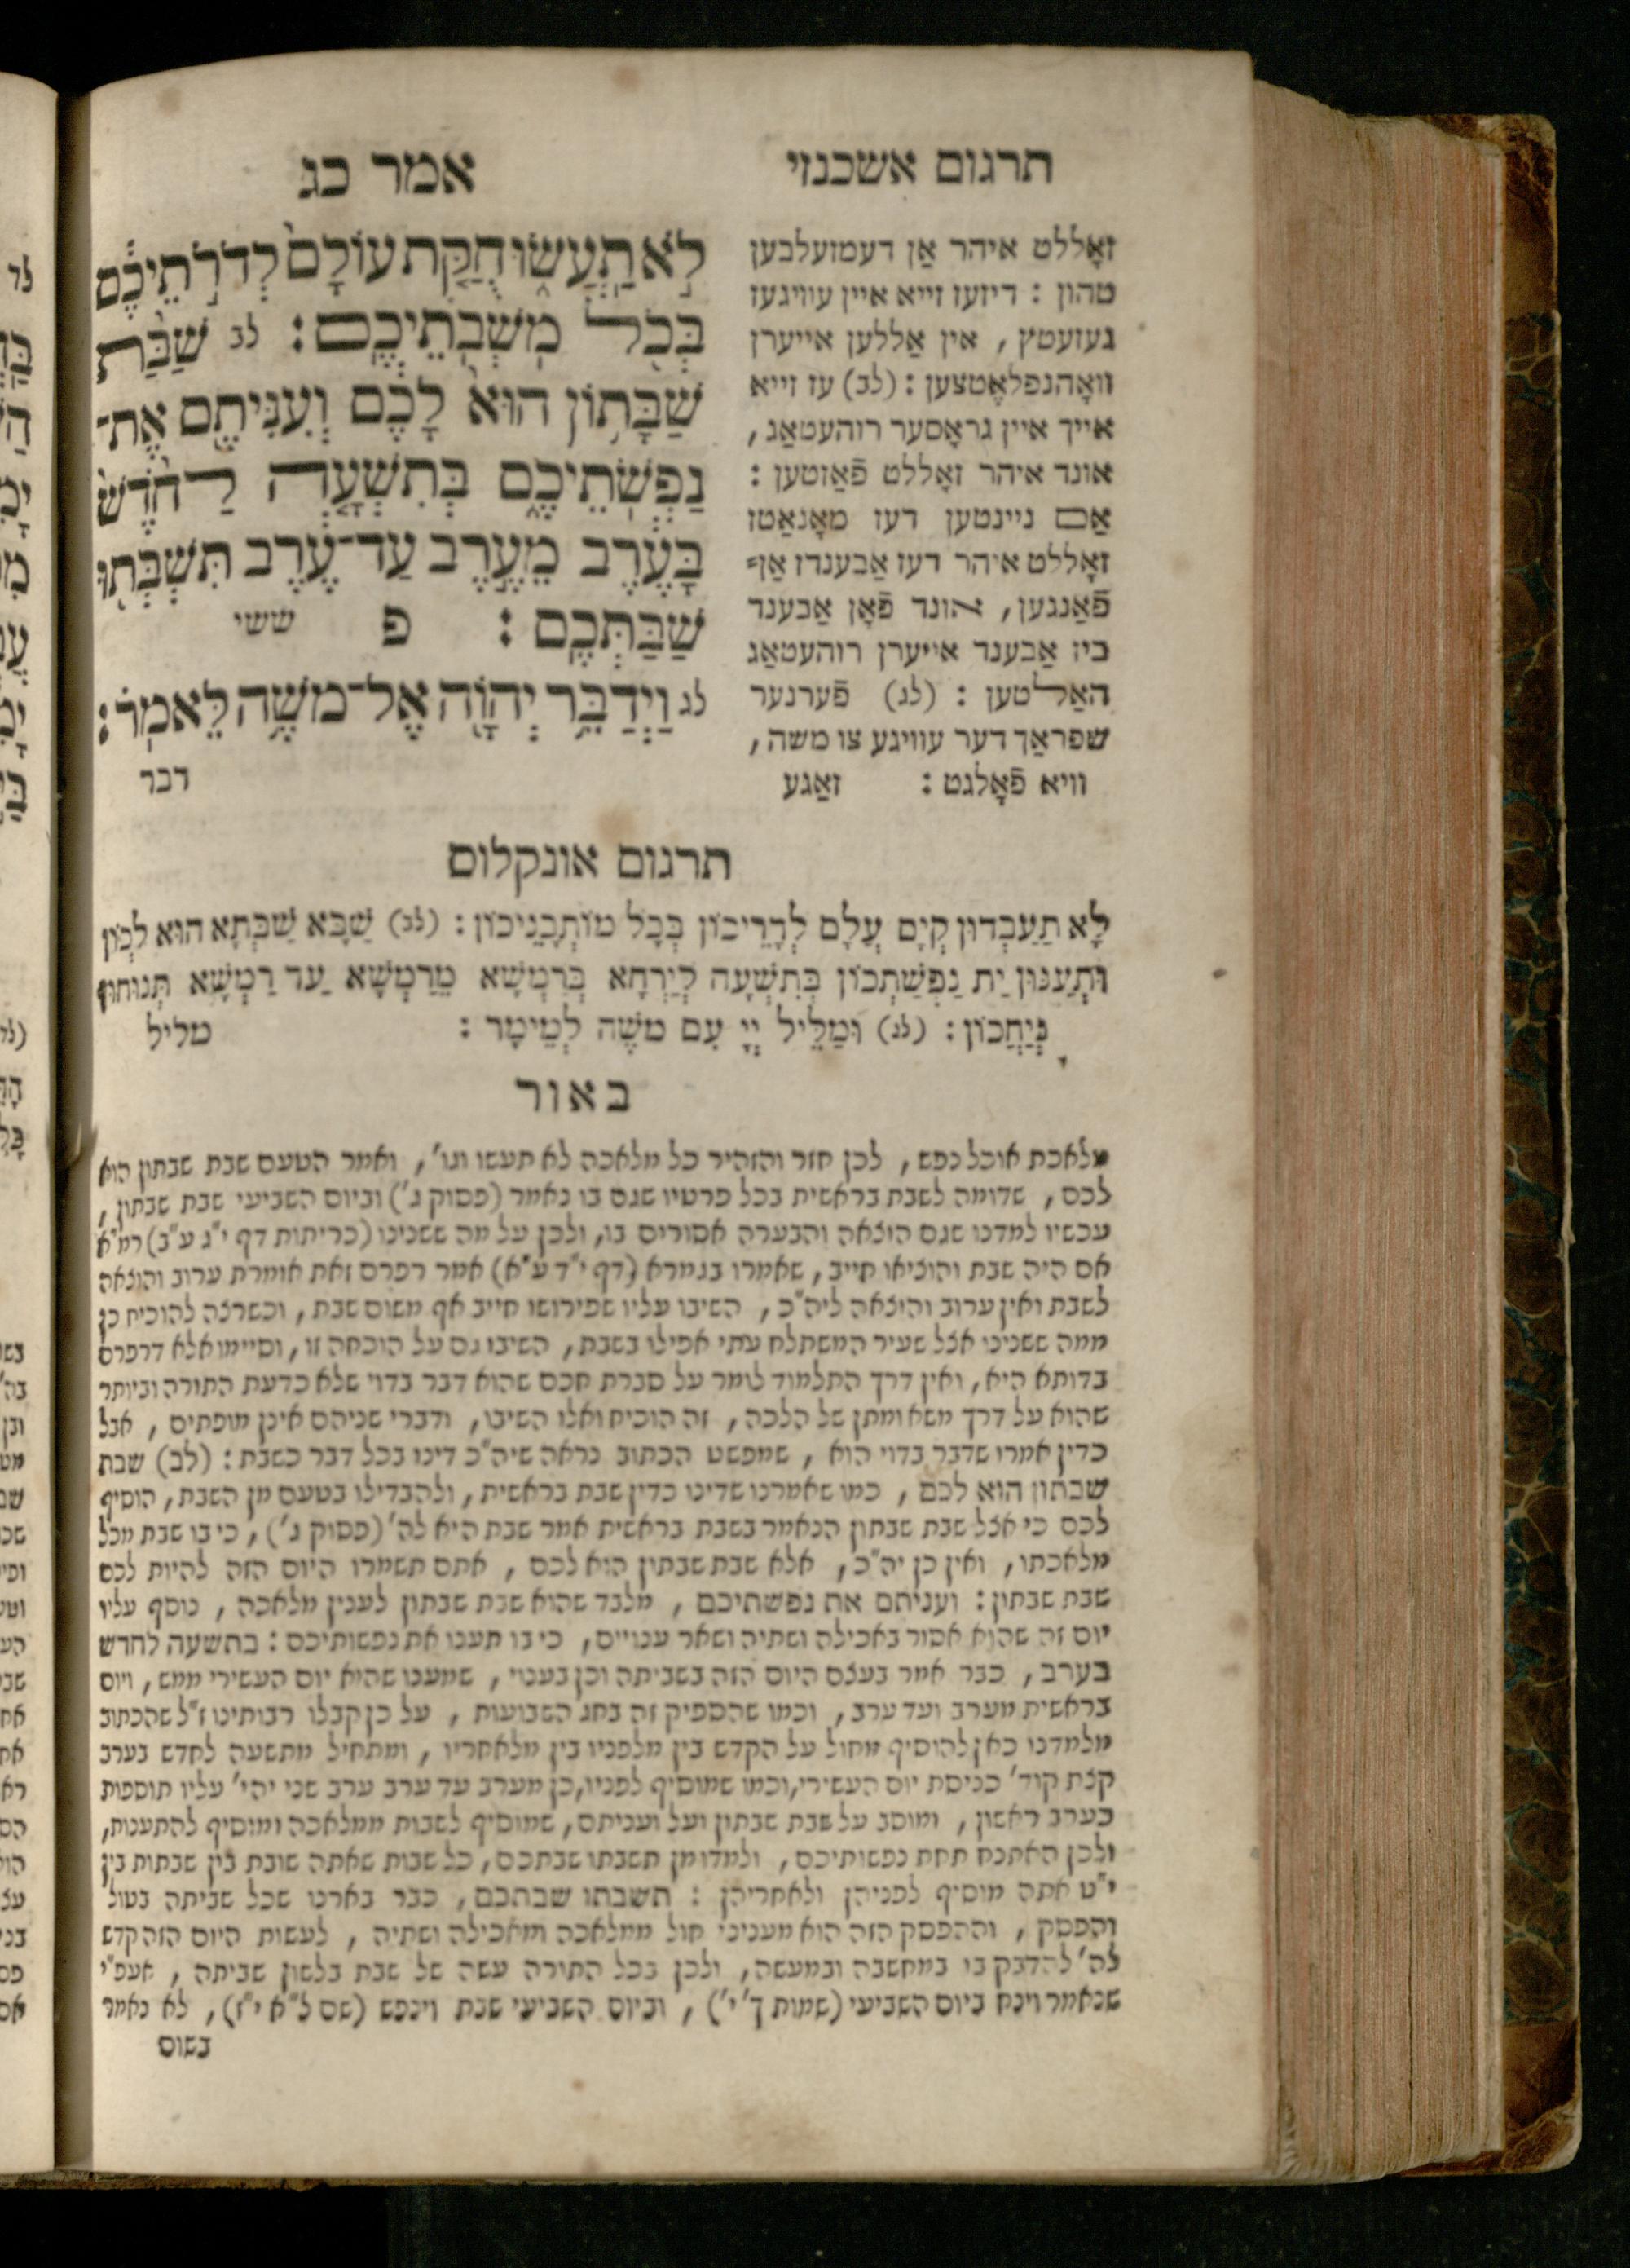 תרגום אשכנזי
אמר כג
זאָללט איהר אַן דעמזעלבען
טהון : דיזעז זייא איין עוויגעז
געזעטץ , אין אַללען אייערן
וואָהנפלאֶטצען : (לב) עז זייא
אייך איין גראָסער רוהעטאַג ,
אונד איהר זאָללט פֿאַזטען :
אַם ניינטען דעז מאָנאַטז
זאָללט איהר דעז אַבענדז אַנ⸗
פֿאַנגען, אונד פֿאָן אַבענד
ביז אַבענד אייערן רוהעטאַג
האַלטען : (לג) פֿערנער
שפראַך דער עוויגע צו משה ,
וויא פֿאָלגט : זאַגע
לֹ֣א תַֽעֲשׂ֑וּ חֻקַּ֤ת עוֹלָם֙ לְדֹרֹ֣תֵיכֶ֔ם
בְּכֹ֖ל מֽשְׁבֹֽתֵיכֶֽם : לב שַׁבַּ֨ת
שַׁבָּת֥וֹן הוּא֙ לָכֶ֔ם וְעִנִּיתֶ֖ם אֶת־
נַפְשֹֽׁתֵיכֶ֑ם בְּתִשְׁעָ֤ה לַחֹ֙דֶשׁ֙
בָּעֶ֔רֶב מֵעֶ֣רֶב עַד־עֶ֔רֶב תִּשְׁבְּת֖וּ
שַׁבַּתְּכֶֽם : פ ששי
לג וַיְדַבֵּ֥ר יְהוָֹ֖ה אֶל־מֹשֶׁ֥ה לֵּאמֹֽר :
דבר
תרגום אונקלוס
לָא תַעַבְדוּן קְיָם עֲלָם לְדָרֵיכוֹן בְּכָל מוֹתְבָנֵיכוֹן : (לב) שַׁבָּא שַׁבְּתָא הוּא לְכוֹן
וּתְעַנּוּן יַת נַפְשַׁתְכוֹן בְּתִשְׁעָה לְיַרְחָא בְּרַמְשָׁא מֵרַמְשָׁא עַד רַמְשָׁא תְּנוּחוּן
נְיָחֲכוֹן : (לג) וּמַלֵּיל יְיָ עִם מֹשֶׁה לְמֵימָר : מליל
באור
מלאכת אוכל נפש , לכן חזר והזהיר כל מלאכה לא תעשו וגו' , ואמר הטעם שבת שבתון הוא
לכם , שדומה לשבת בראשית בכל פרטיו שגם בו נאמר (פסוק ג') וביום השביעי שבת שבתון ,
עכשיו למדנו שגם הוצאה והבערה אסורים בו, ולכן על מה ששנינו (כריתות דף י"ג ע"ב) רמ"א
אם היה שבת והוציאו חייב , שאמרו בגמרא (דף י"ד ע"א) אמר רפרם זאת אומרת ערוב והוצאה
לשבת ואין ערוב והוצאה ליה"כ , השיבו עליו שפירושו חייב אף משום שבת , וכשרצה להוכיח כן
ממה ששנינו אצל שעיר המשתלח עתי אפילו בשבת , השיבו גם על הוכחה זו , וסיימו אלא דרפרם
בדותא היא , ואין דרך התלמוד לומר על סברת חכם שהוא דבר בדוי שלא כדעת התורה וביותר
שהוא על דרך משא ומתן של הלכה , זה הוכיח ואלו השיבו , ודברי שניהם אינן מופתים , אבל
כדין אמרו שדבר בדוי הוא , שמפשט הכתוב נראה שיה"כ דינו בכל דבר כשבת : (לב) שבת
שבתון הוא לכם , כמו שאמרנו שדינו כדין שבת בראשית , ולהבדילו בטעם מן השבת , הוסיף
לכם כי אצל שבת שבתון הנאמר בשבת בראשית אמר שבת היא לה' (פסוק ג') , כי בו שבת מכל
מלאכתו , ואין כן יה"כ , אלא שבת שבתון הוא לכם , אתם תשמרו היום הזה להיות לכם
שבת שבתון : ועניתם את נפשתיכם , מלבד שהוא שבת שבתון לענין מלאכה , נוסף עליו
יום זה שהוא אסור באכילה ושתיה ושאר ענויים , כי בו תענו את נפשותיכם : בתשעה לחדש
בערב , כבר אמר בעצם היום הזה בשביתה וכן בענוי , שמענו שהוא יום העשירי ממש , ויום
בראשית מערב ועד ערב , וכמו שהספיק זה בחג השבועות , על כן קבלו רבותינו ז"ל שהכתוב
מלמדנו כאן להוסיף מחול על הקדש בין מלפניו בין מלאחריו , ומתחיל מתשעה לחדש בערב
קצת קוד' כניסת יום העשירי , וכמו שמוסיף לפניו , כן מערב עד ערב ערב שני יהי' עליו תוספות
כערב ראשון , ומוסב על שבת שבתון ועל ועניתם , שמוסיף לשבות ממלאכה ומוסיף להתענות ,
ולכן האתנח תחת נפשותיכם , ולמדו מן תשבתו שבתכם , כל שבות שאתה שובת בין שבתות בין
י"ט אתה מוסיף לפניהן ולאחריהן : תשבתו שבתכם , כבר בארנו שכל שביתה בטול
והפסק , וההפסק הזה הוא מעניני חול ממלאכה ומאכילה ושתיה , לעשות היום הזה קדש
לה' להדבק בו במחשבה ובמעשה , ולכן בכל התורה עשה של שבת בלשון שביתה , אעפ"י
שנאמר וינח ביום השביעי (שמות ך' י') , וביום השביעי שבת וינפש (שם ל"א י"ז) , לא נאמר
בשום